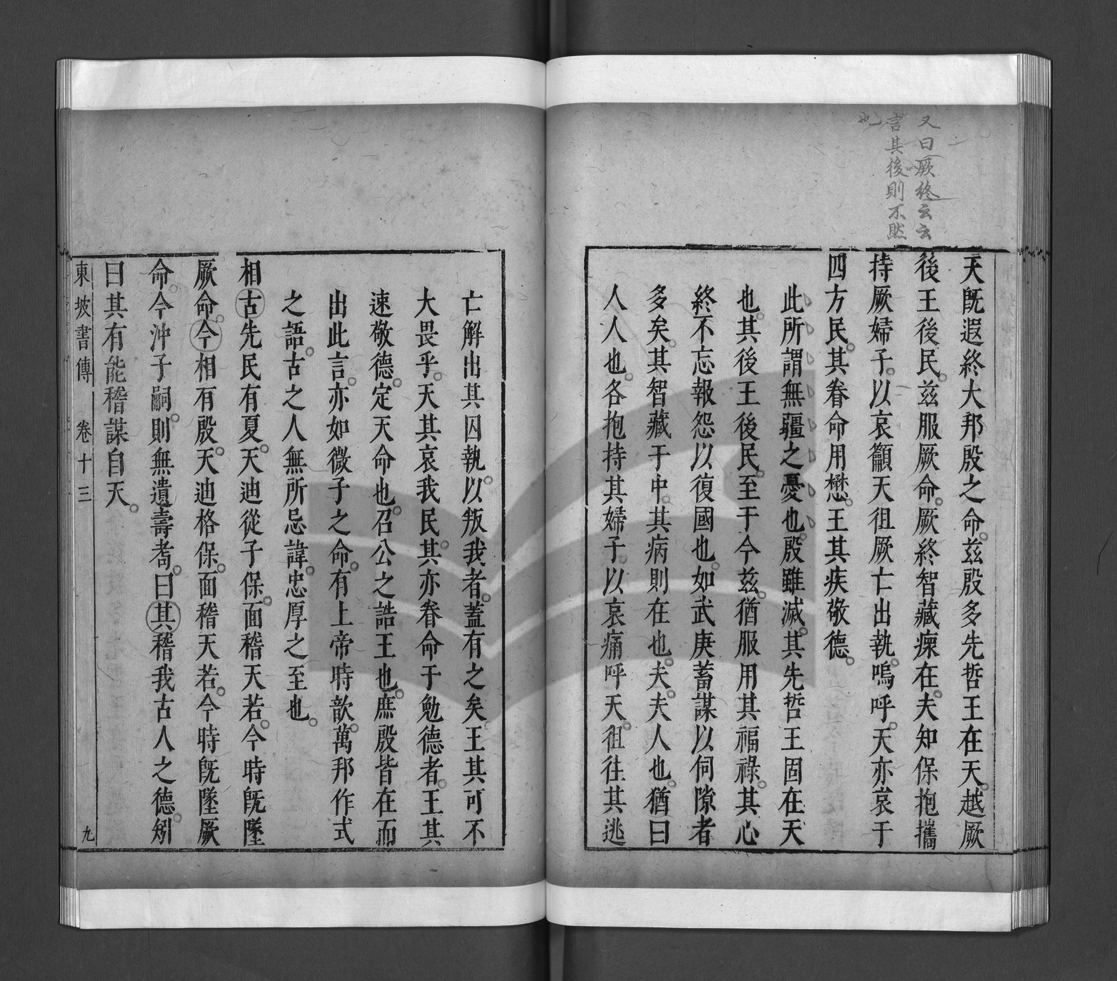 又曰厥終云云
言其後則不然
也
天旣遐終大邦殷之命。兹殷多先哲王在天。越厥
後王後民。兹服厥命。厥終智藏瘝在。夫知保抱攜
持厥婦子。以哀籲天徂厥亡出執。嗚呼。天亦哀于
四方民。其眷命用懋。王其疾敬德。
此所謂無疆之憂也。殷雖滅。其先哲王固在天
也。其後王後民。至于今兹。猶服用其福祿。其心
終不忘報怨以復國也。如武庚蓄謀以伺隙者
多矣。其智藏于中。其病則在也。夫。夫人也。猶曰
人人也。各抱持其婦子。以哀痛呼天。徂往其逃
亡解出其囚執。以叛我者。蓋有之矣王其可不
大畏乎。天其哀我民。其亦眷命于勉德者。王其
速敬德。定天命也。召公之誥王也。庶殷皆在。而
出此言。亦如微子之命。有上帝時歆。萬邦作式
之語。古之人無所忌諱。忠厚之至也。
相古先民有夏。天迪從子保。面稽天若。今時旣墜
厥命。今相有殷。天迪格保。面稽天若。今時旣墜厥
命。今沖子嗣。則無遺壽耇。曰其稽我古人之德。矧
曰其有能稽謀自天。
東坡書傳 卷十三 九